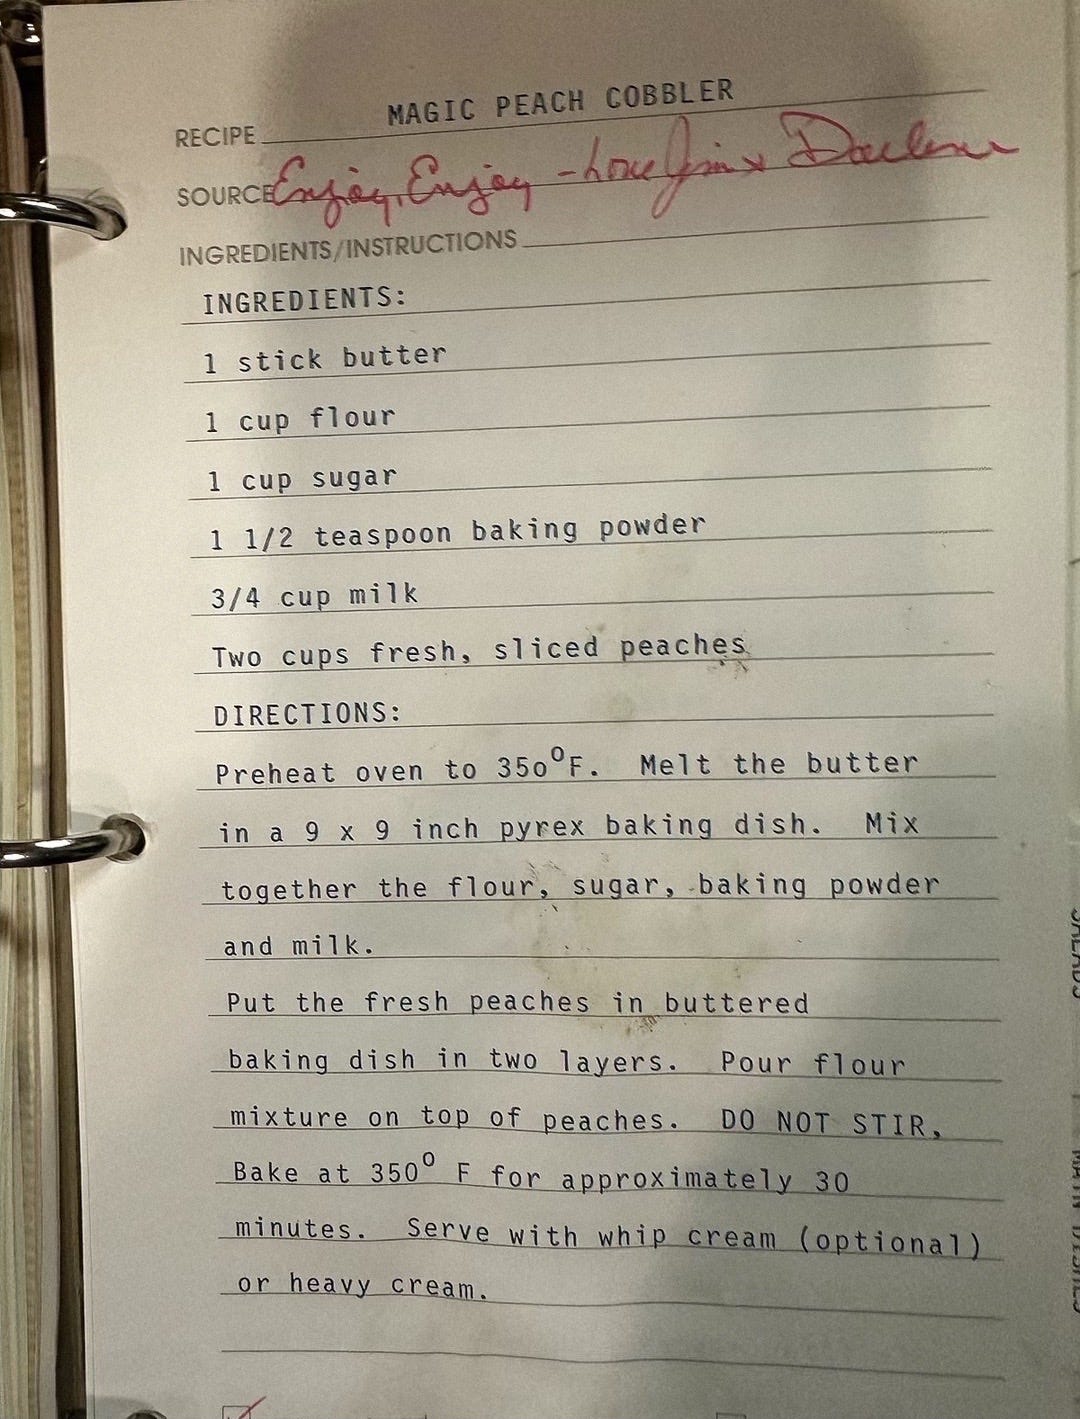 RECIPE MAGIC PEACH COBBLER
SOURCE Enjoy, Enjoy - Love Jim & Darlene
INGREDIENTS/INSTRUCTIONS
INGREDIENTS:
1 stick butter
1 cup flour
1 cup sugar
1 1/2 teaspoon baking powder
3/4 cup milk
Two cups fresh, sliced peaches
DIRECTIONS:
Preheat oven to 350°F. Melt the butter
in a 9 x 9 inch pyrex baking dish. Mix
together the flour, sugar, baking powder
and milk.
Put the fresh peaches in buttered
baking dish in two layers. Pour flour
mixture on top of peaches. DO NOT STIR,
Bake at 350° F for approximately 30
minutes. Serve with whip cream (optional)
or heavy cream.
SALADS
MAIN DISHES